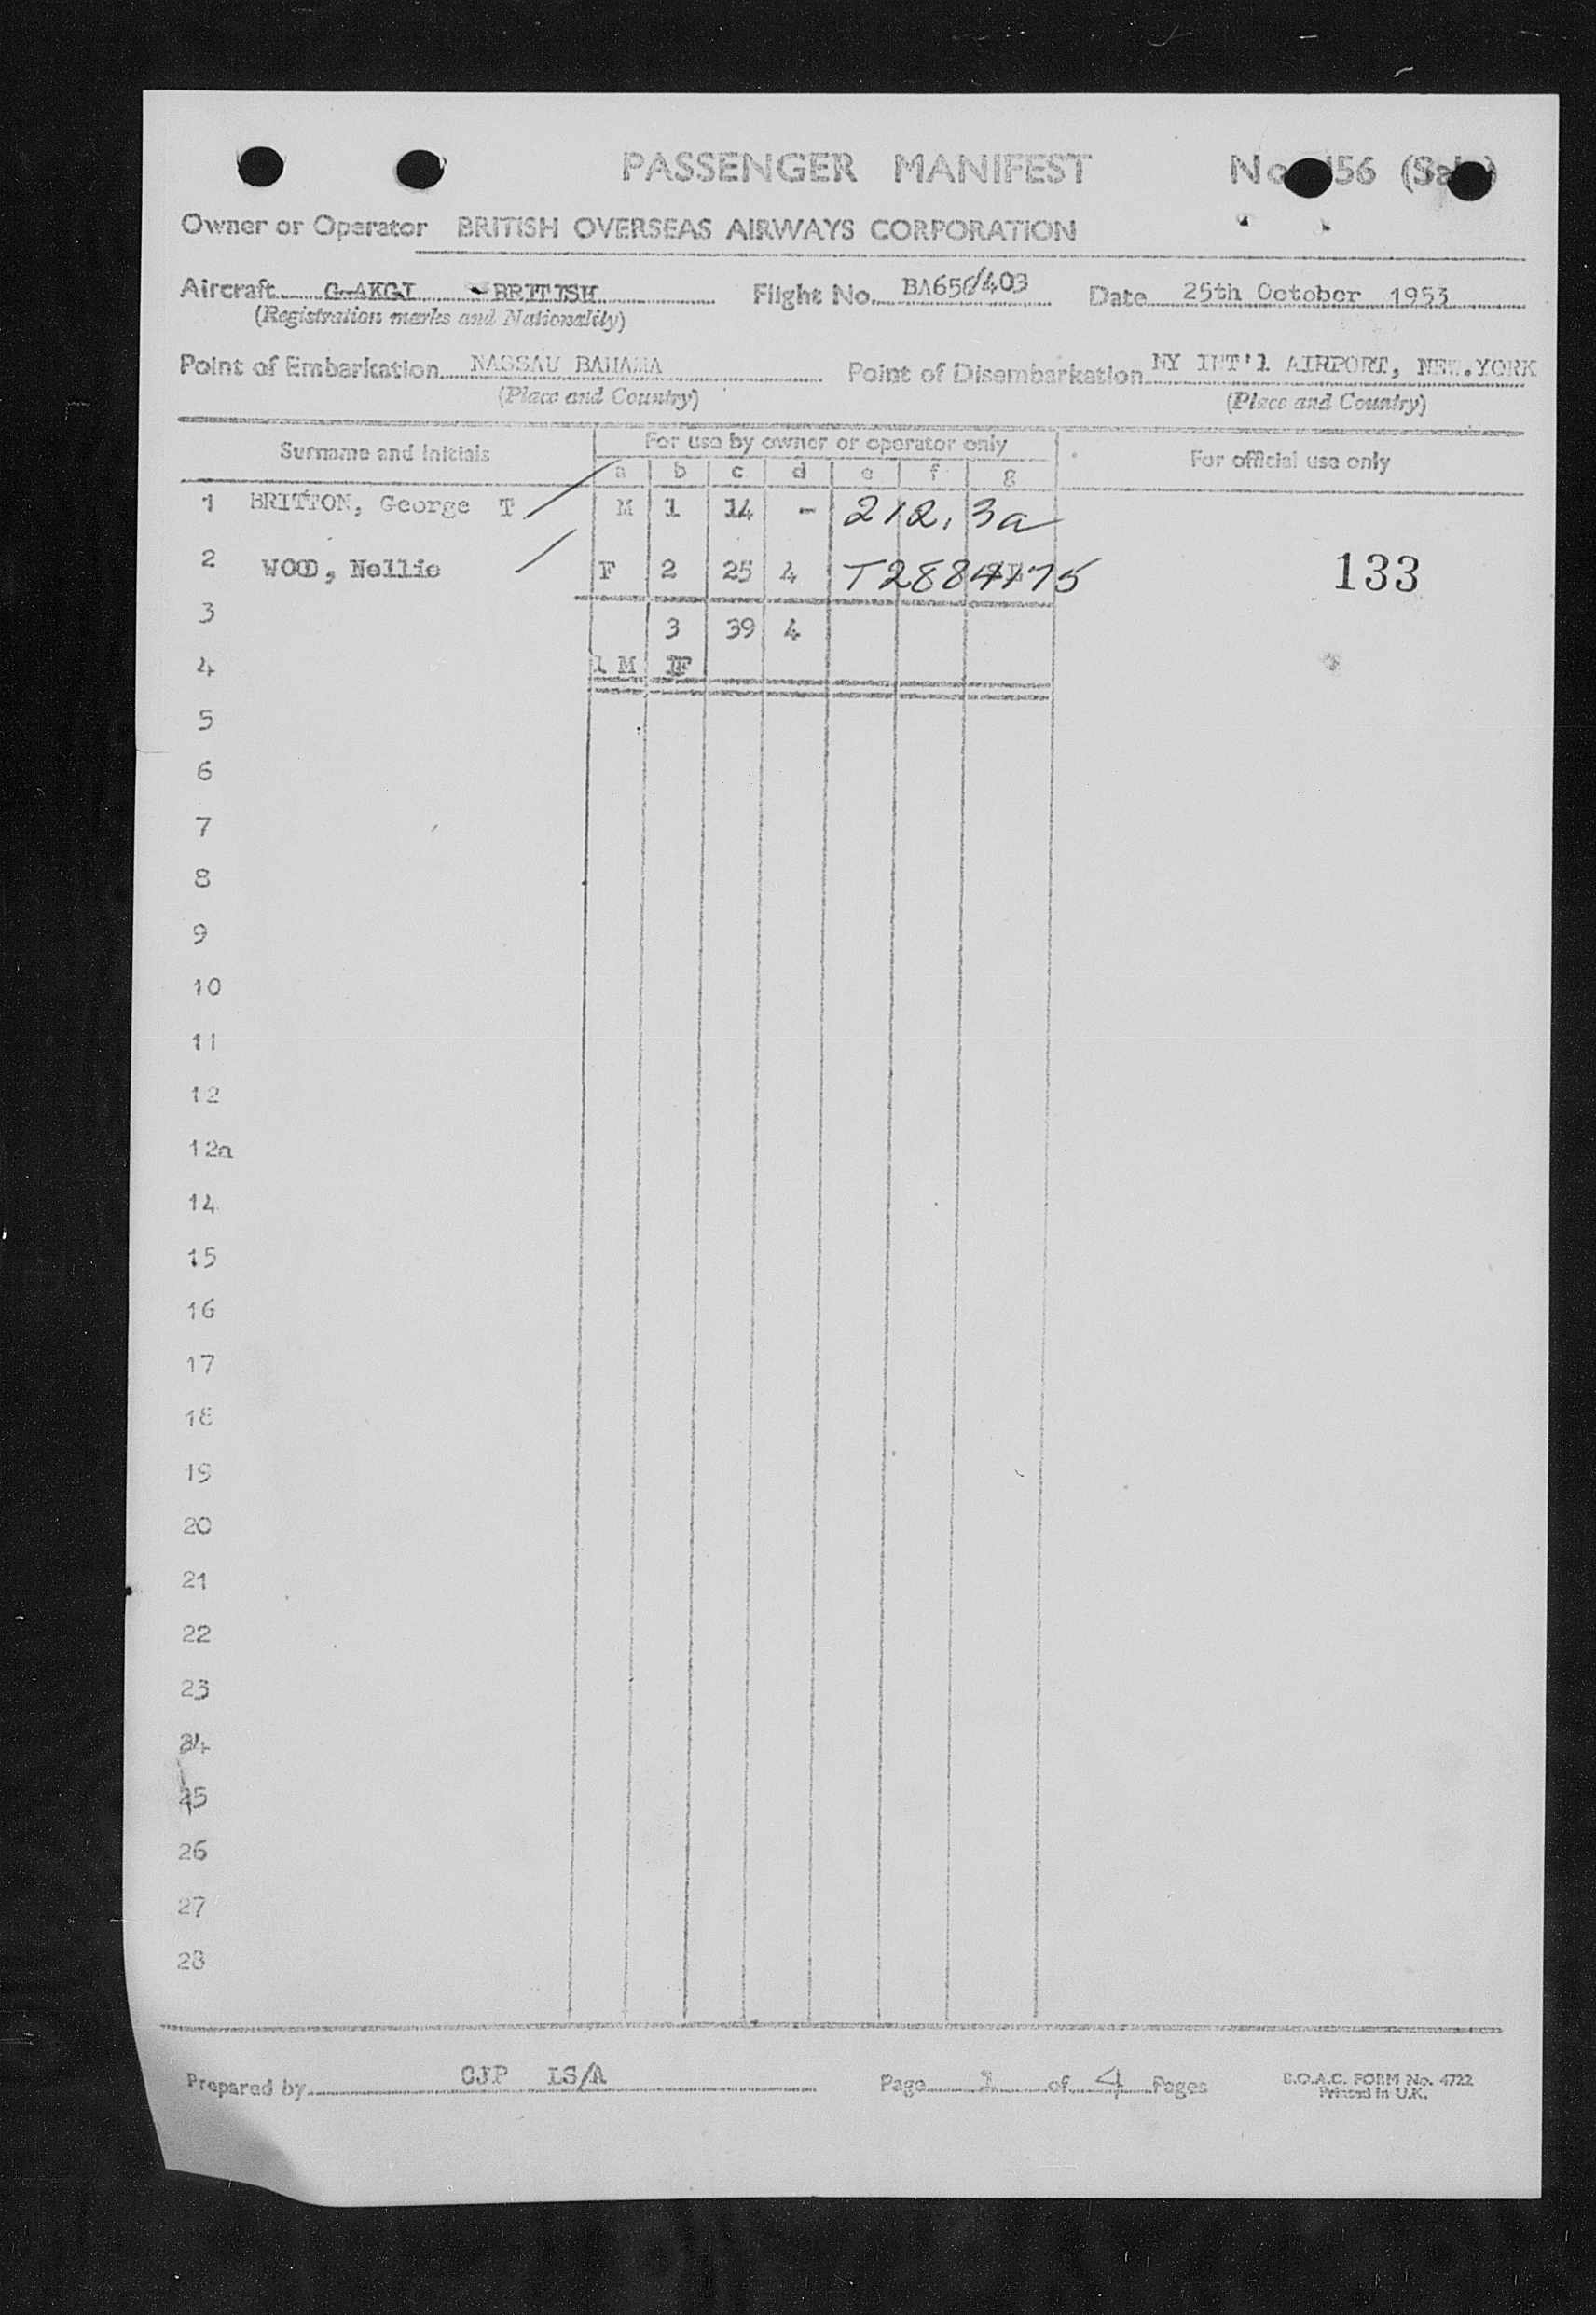 PASSENGER MANIFEST
Owner or Operator BRITISH OVERSEAS AIRWAYS CORPORATION
Aircraft G-AKGJ - BRITISH Flight No. BA650/403 Date 25th October 1953
(Registration marks and Nationality)
Point of Embarkation NASSAU BAHAMA Point of Disembarkation NY INT'l AIRPORT, NEW.YORK
(Place and Country) (Place and Country)
Surname and Initials For use by owner or operator only For official use only
a b c d e f g
1 BRITTON, George T M 1 14 - 212.3a
2 WOOD, Nellie F 2 25 4 133
3 3 39 4
4 1 M 1F
5
6
7
8
9
10
11
12
12a
14
15
16
17
18
19
20
21
22
23
24
25
26
27
28
Prepared by CJP LS/A Page 1 of 4 Pages B.O.A.C. FORM No. 4722
Printed in U.K.